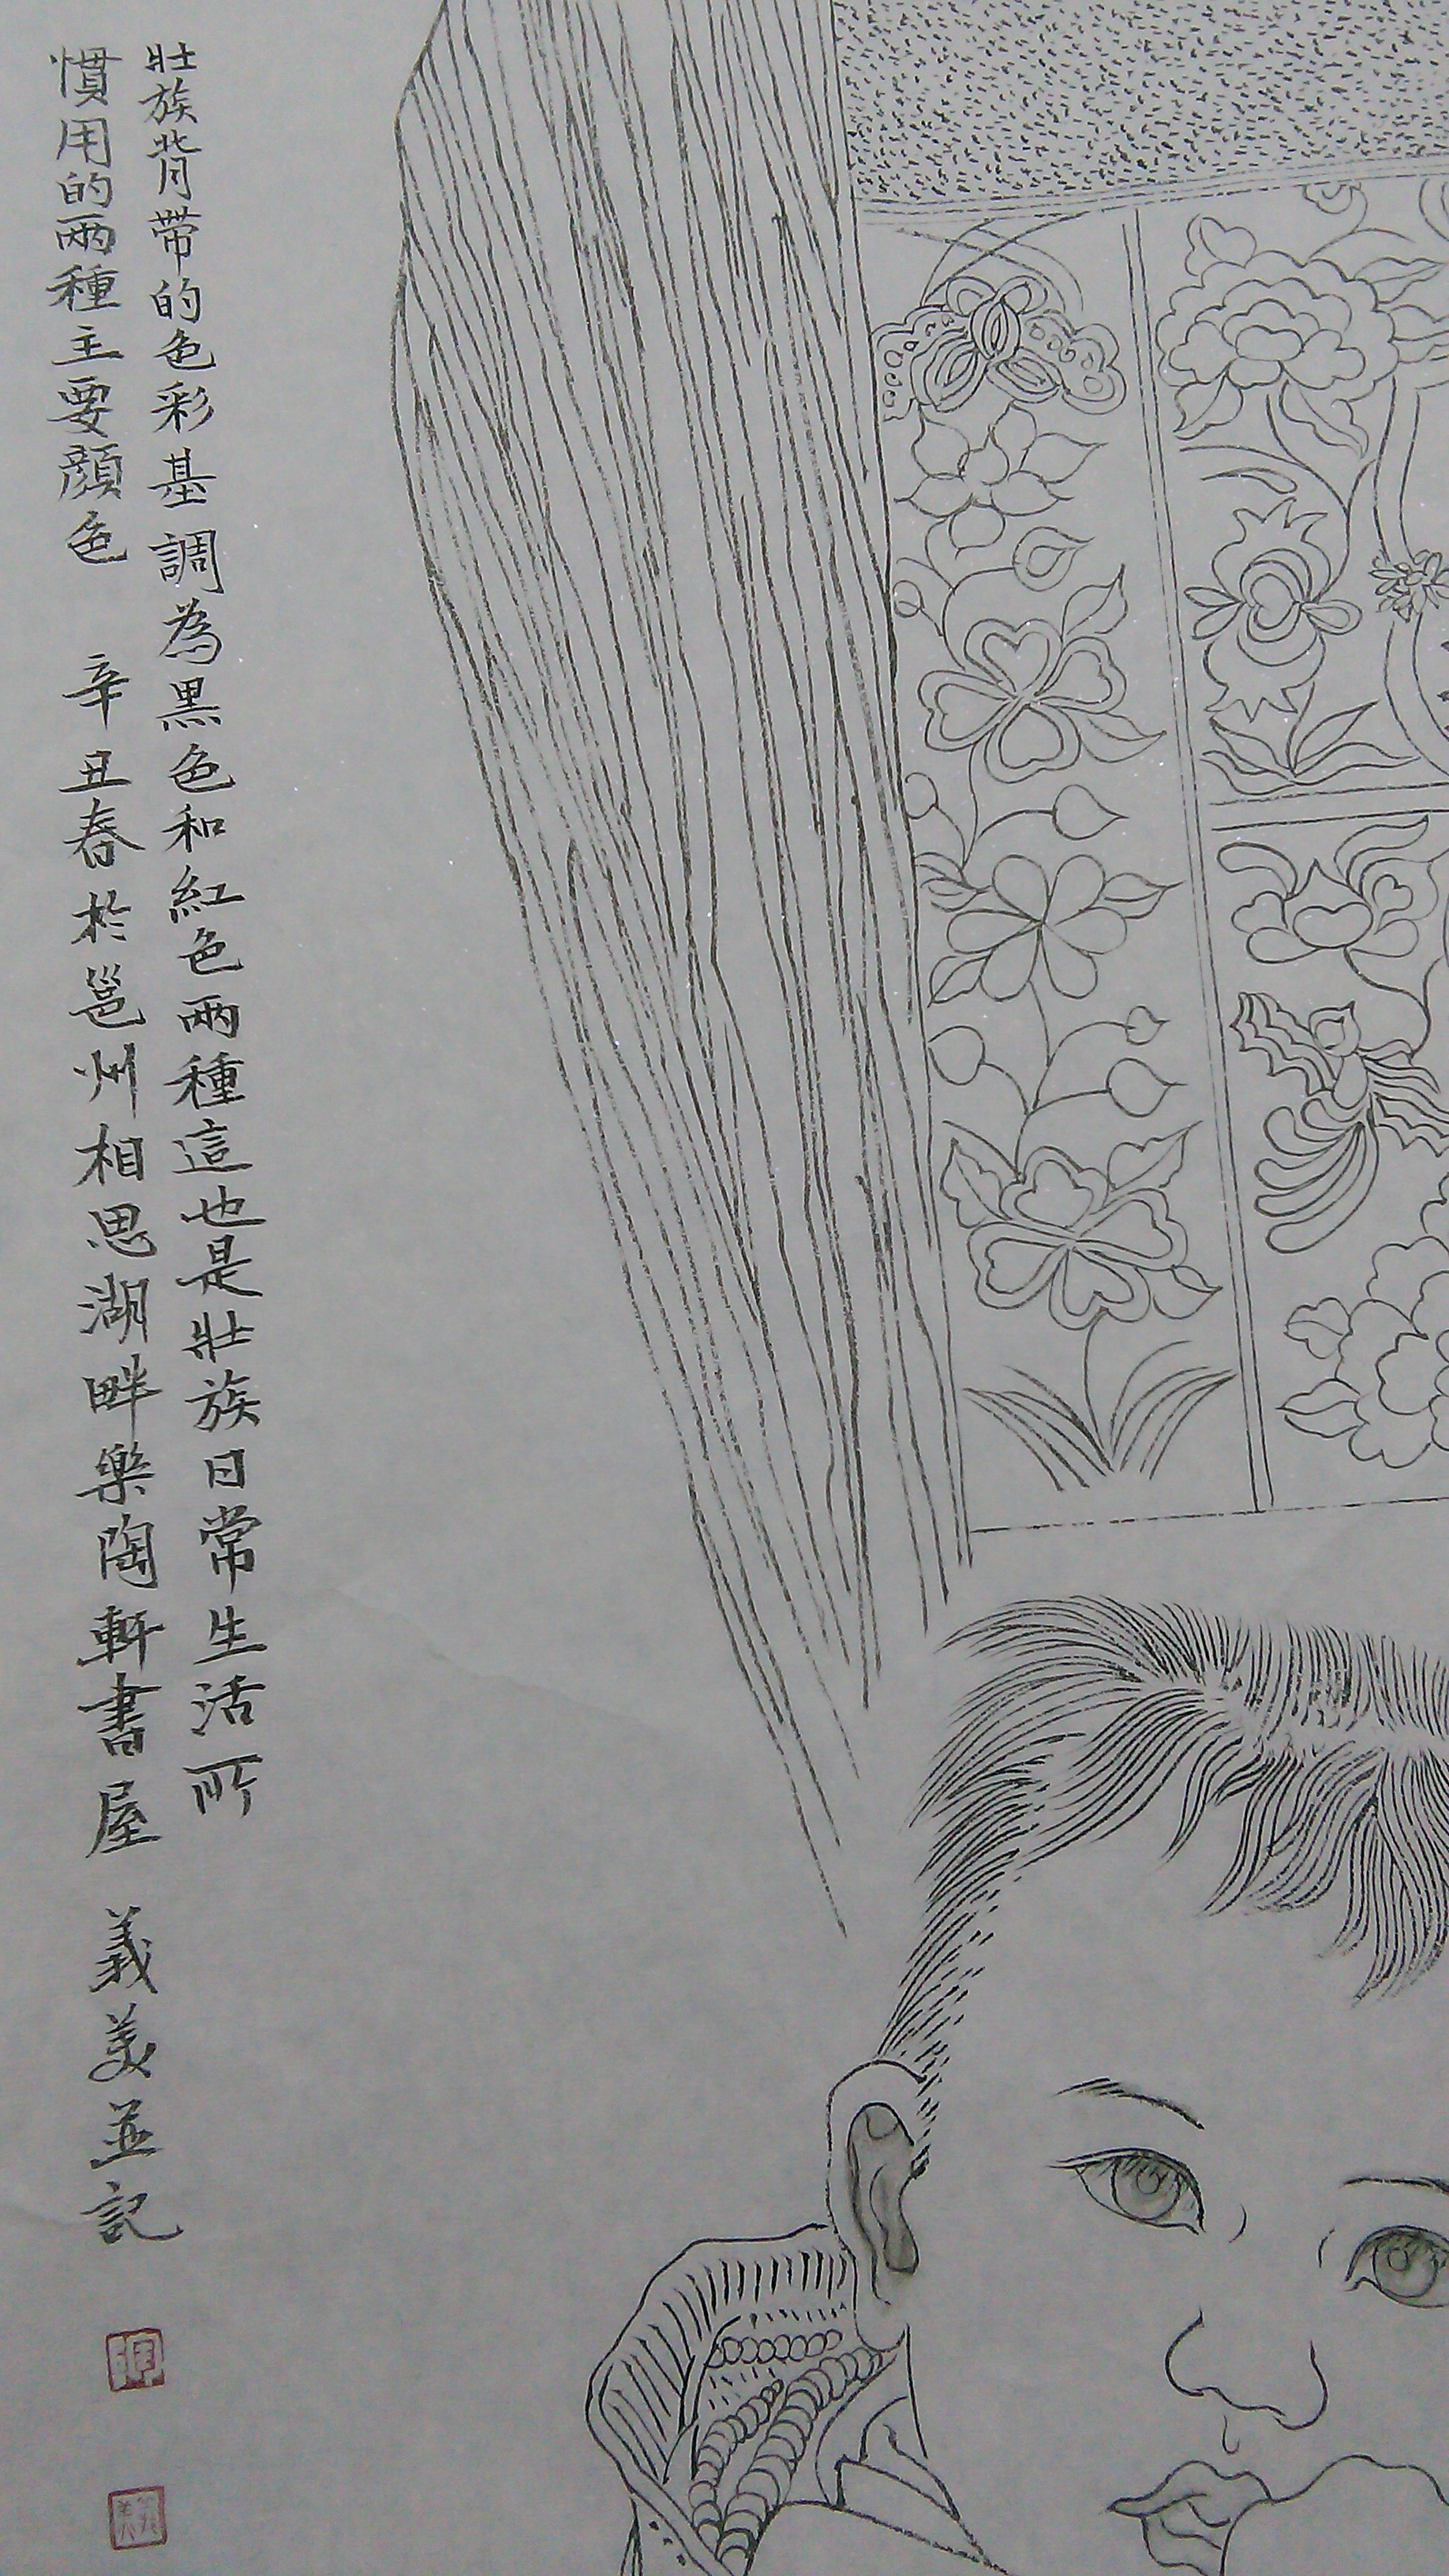 壯族背帶的色彩基調為黑色和紅色兩種這也是壯族日常生活所
慣用的兩種主要顏色 辛丑春於邕州相思湖畔樂陶軒書屋 義美並記